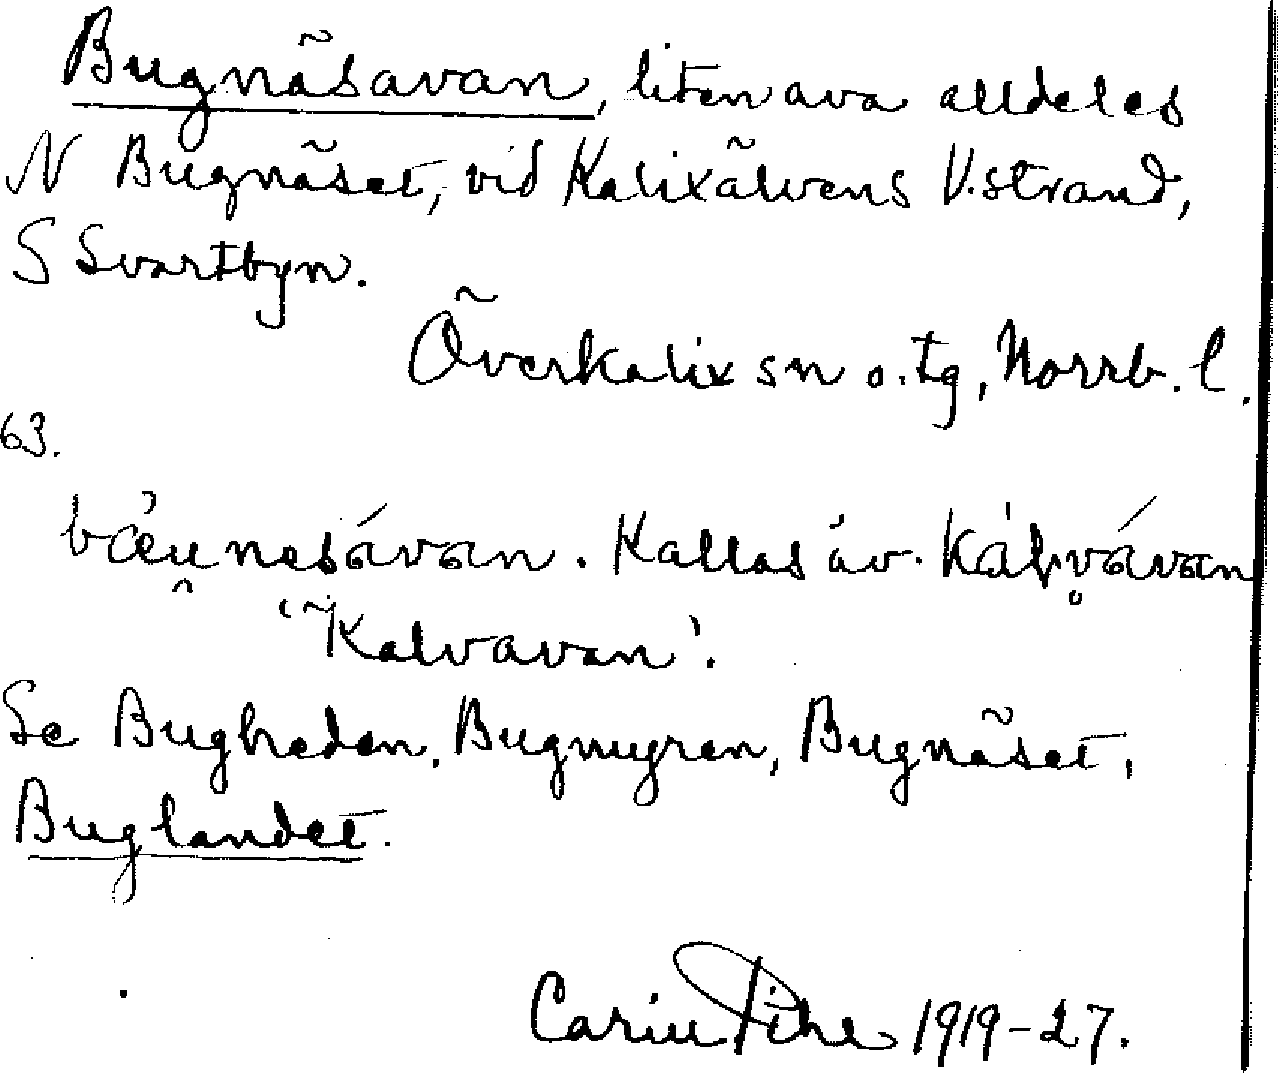 Bugnäsavan, liten ava alldeles
N Bugnäset, vid Kalixälvens V. strand,
S Svartbyn.
Överkalix sn o. tg, Norrb. l.
63.
bæu̯nesávan. Kallas äv. kálv̥ávan
'Kalvavan'.
Se Bugheden, Bugmyren, Bugnäset,
Buglandet.
Carin Pihl 1919-27.